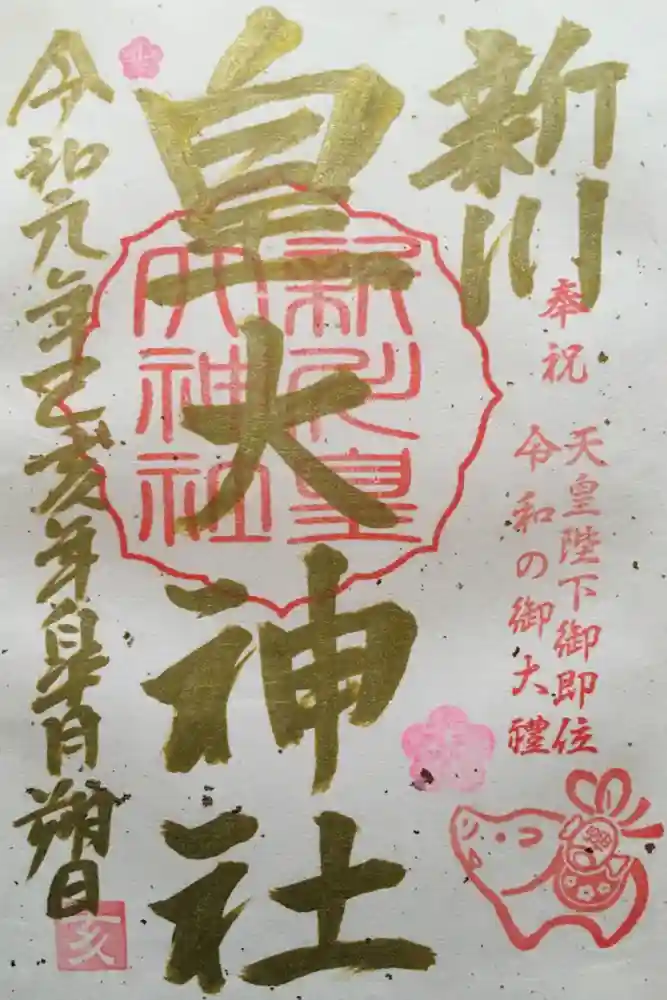 新川
奉祝
天皇陛下御即位
令和の御大禮
皇大神社
新川皇
大神社
令和元年己亥年皐月朔日
亥